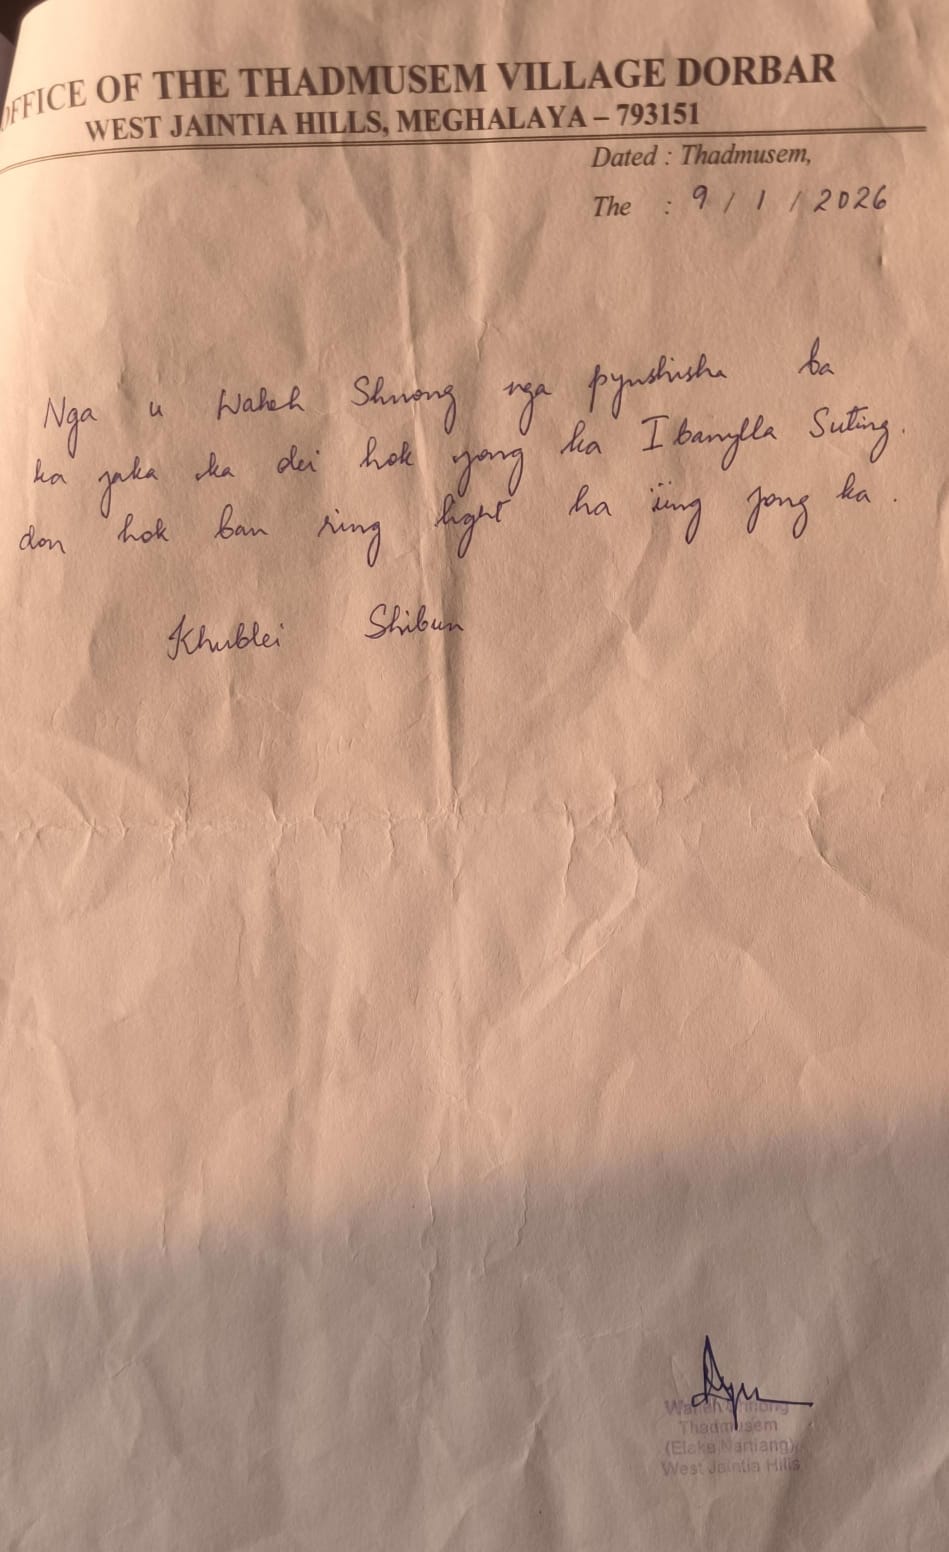 OFFICE OF THE THADMUSEM VILLAGE DORBAR
WEST JAINTIA HILLS, MEGHALAYA – 793151
Dated : Thadmusem,
The : 9 / 1 / 2026
Nga u Waheh Shnong nga pynshisha ba
ka jaka ka dei hok yong ka Ibanylla Suting.
don hok ban ring light ha ïing jong ka.
Khublei Shibun
Waheh Shnong
Thadmusem
(Elaka Nartiang)
West Jaintia Hills